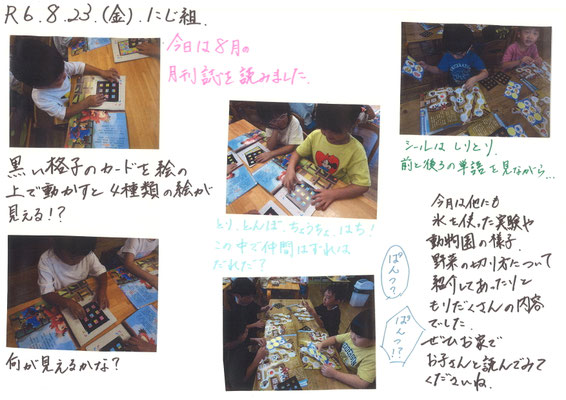 R6.8.23.(金).にじ組.
今日は8月の
月刊誌を読みました.
黒い格子のカードを絵の
上で動かすと4種類の絵が
見える!?
何が見えるかな?
とり、とんぼ、ちょうちょ、はち!
この中で仲間はずれは
だれだ?
ぱんつ?
ぱんつ!?
シールは しりとり.
前と後ろの単語を見ながら...
今月は他にも
氷を使った実験や
動物園の様子.
野菜の切り方について
紹介してあったりと
もりだくさんの内容
でした.
ぜひお家で
お子さんと読んでみて
くださいね.